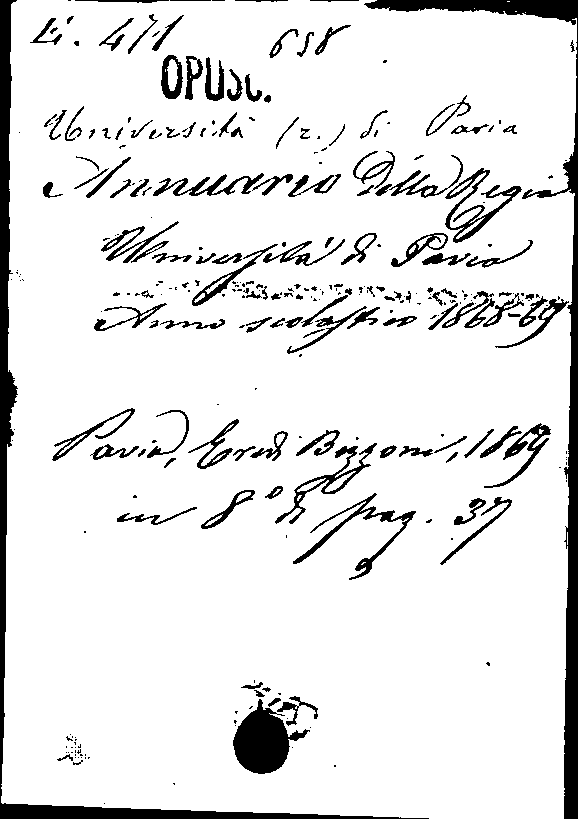 471 658
OPUSC.
Università (r.) di Pavia
Annuario della Regia
Università di Pavia
Anno scolastico 1868-69
Pavia, Eredi Bizzoni, 1869
in 8º di pag. 37